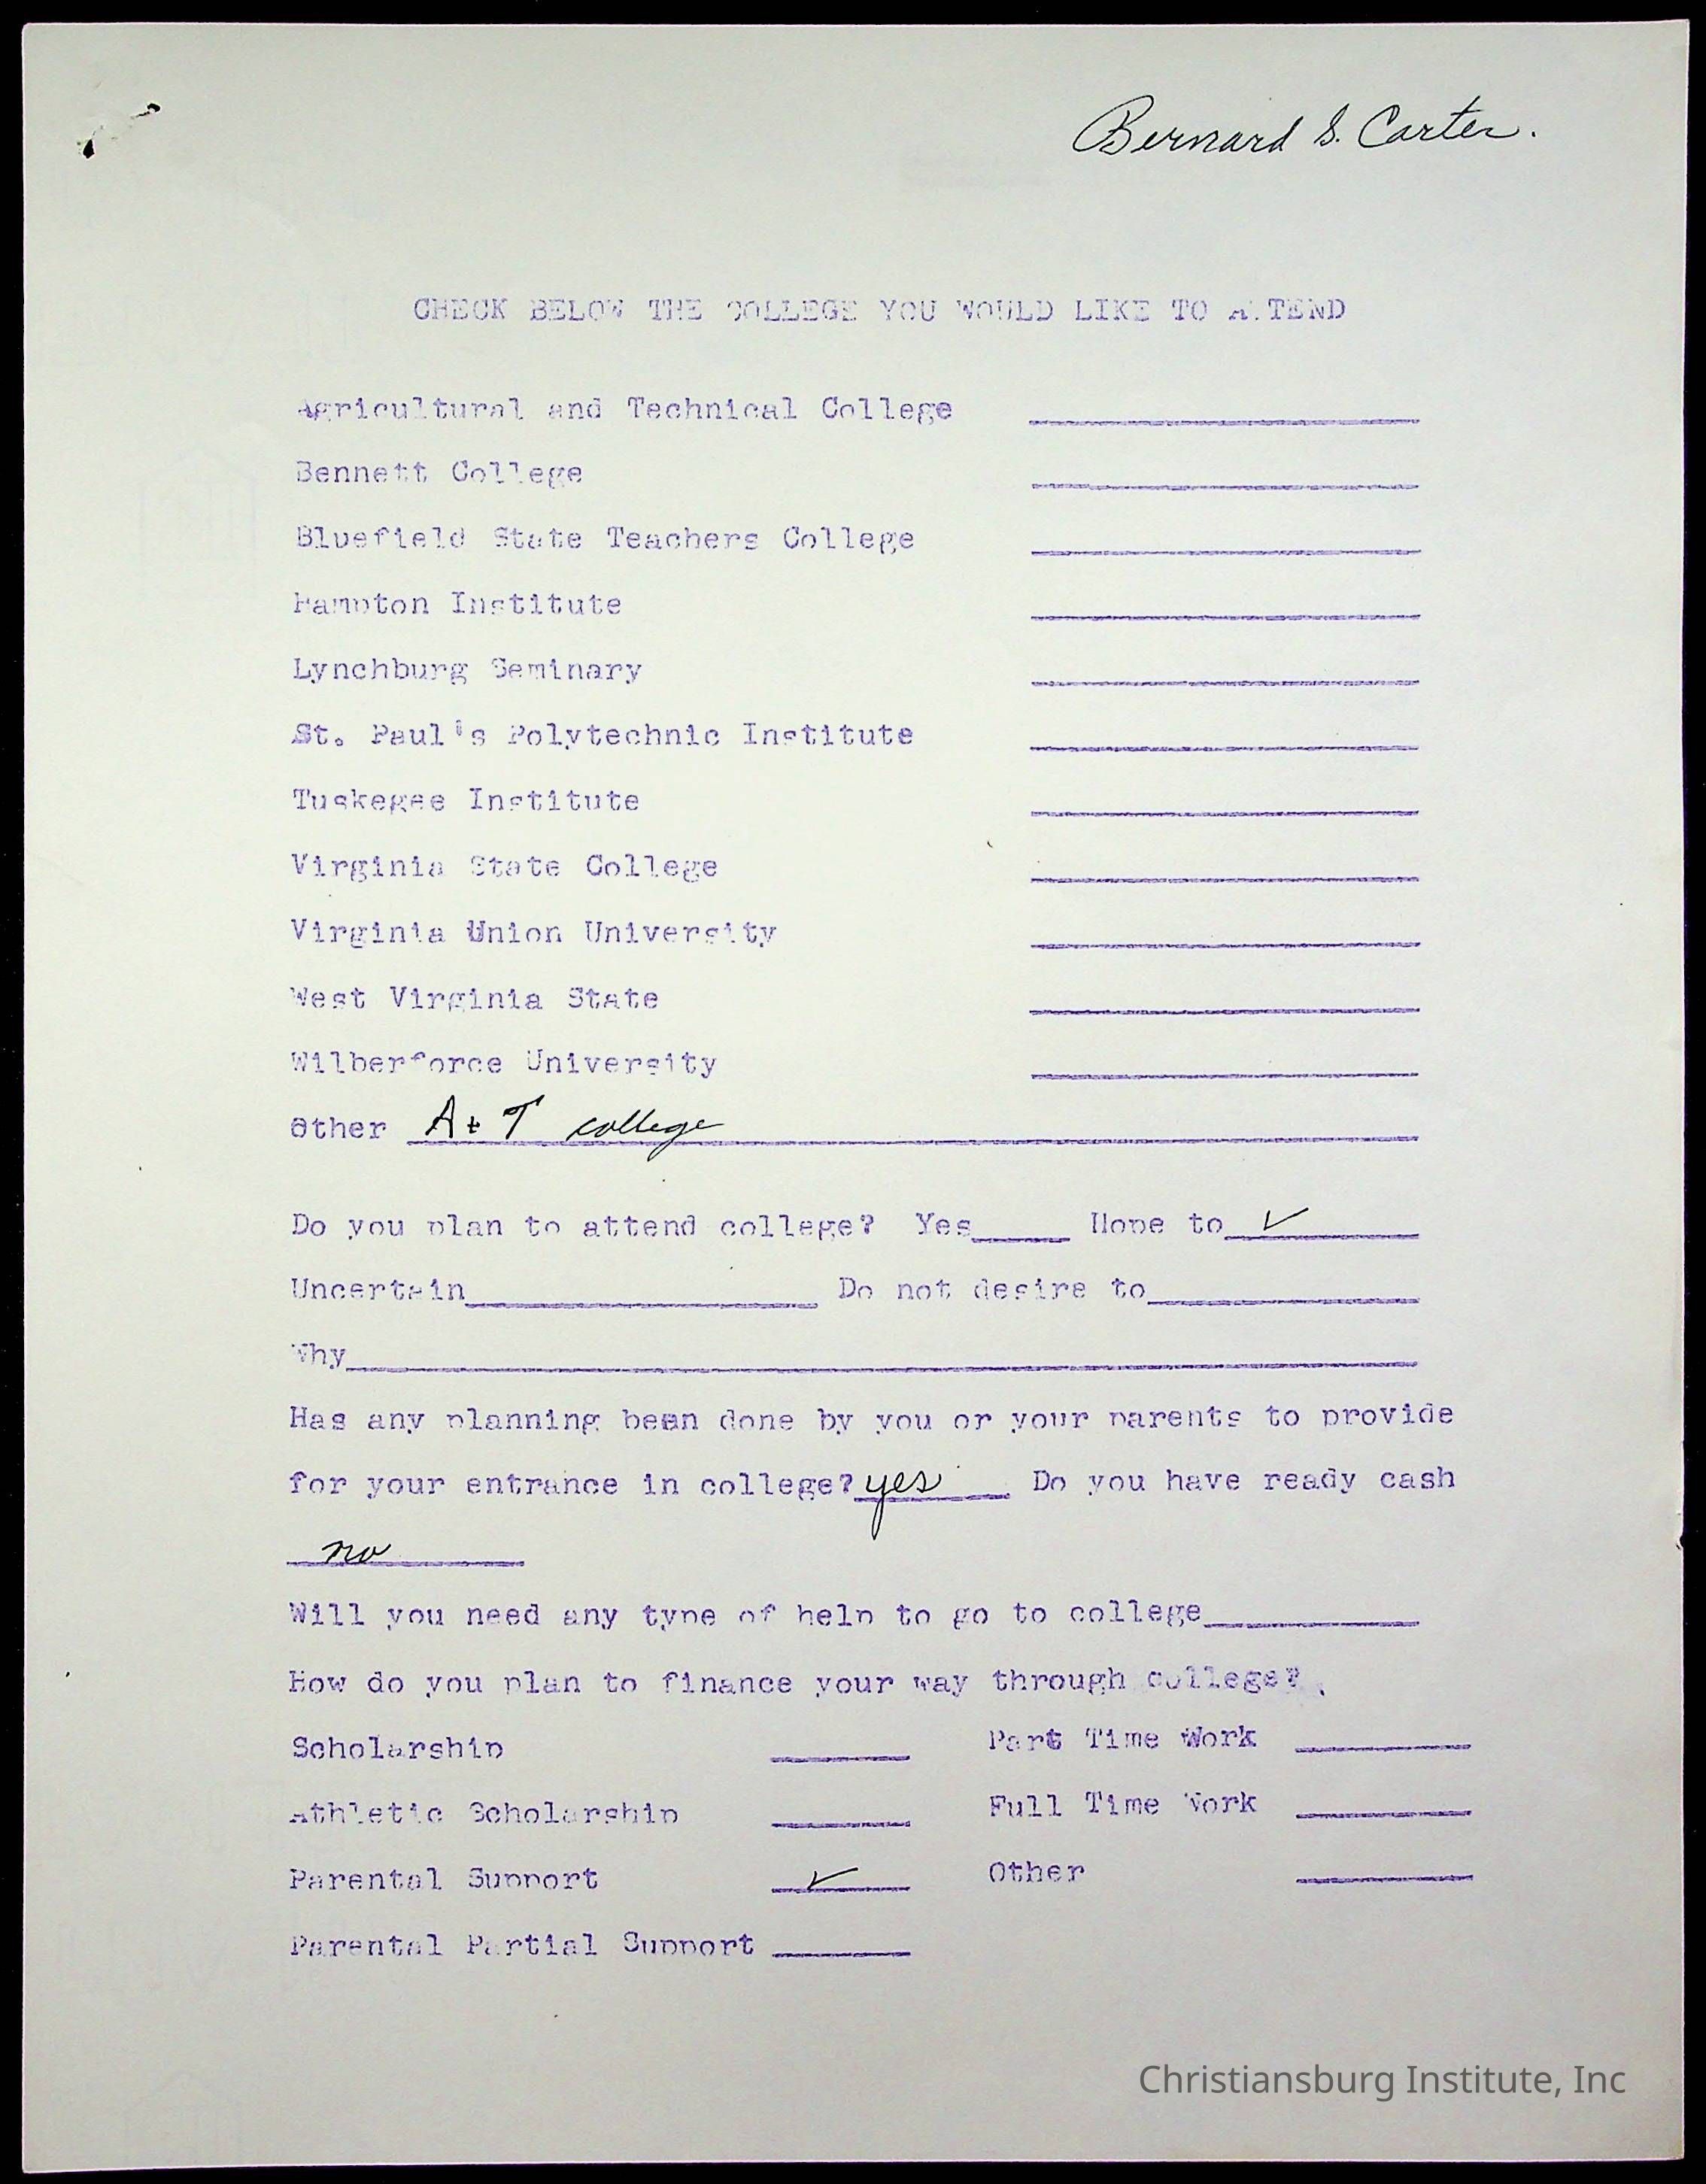 Bernard S. Carter.
CHECK BELOW THE COLLEGE YOU WOULD LIKE TO ATTEND
Agricultural and Technical College ____________________
Bennett College ____________________
Bluefield State Teachers College ____________________
Hampton Institute ____________________
Lynchburg Seminary ____________________
St. Paul's Polytechnic Institute ____________________
Tuskegee Institute ____________________
Virginia State College ____________________
Virginia Union University ____________________
West Virginia State ____________________
Wilberforce University ____________________
Other A + T college
Do you plan to attend college? Yes_____ Hope to ✓
Uncertain__________________ Do not desire to______________
Why_______________________________________________________
Has any planning been done by you or your parents to provide
for your entrance in college? yes Do you have ready cash
no
Will you need any type of help to go to college___________
How do you plan to finance your way through college?
Scholarship _______ Part Time Work _________
Athletic Scholarship _______ Full Time Work _________
Parental Support ✓ Other _________
Parental Partial Support _______
Christiansburg Institute, Inc